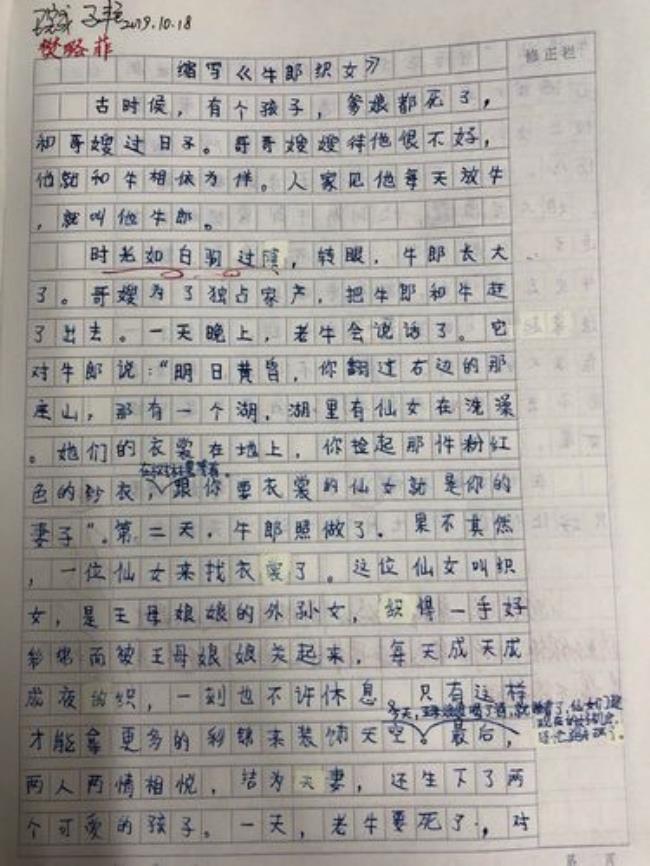 2019.10.18
樊璐菲
修正栏
缩写《牛郎织女》
古时候，有个孩子，爹娘都死了，
和哥嫂过日子。哥哥嫂嫂待他很不好，
他就和牛相依为伴。人家见他每天放牛
，就叫他牛郎。
时光如白驹过隙，转眼，牛郎长大
了。哥嫂为了独占家产，把牛郎和牛赶
了出去。一天晚上，老牛会说话了。它
对牛郎说：“明日黄昏，你翻过右边的那
座山，那有一个湖，湖里有仙女在洗澡
。她们的衣裳在地上，你捡起那件粉红
色的纱衣，跟你要衣裳的仙女就是你的
妻子”。第二天，牛郎照做了。果不其然
，一位仙女来找衣裳了。这位仙女叫织
女，是王母娘娘的外孙女，织得一手好
彩锦而被王母娘娘关起来，每天成天成
成夜的织，一刻也不许休息，只有这样
才能拿更多的彩锦来装饰天空。最后，
两人两情相悦，结为夫妻，还生下了两
个可爱的孩子。一天，老牛要死了，对
第 页